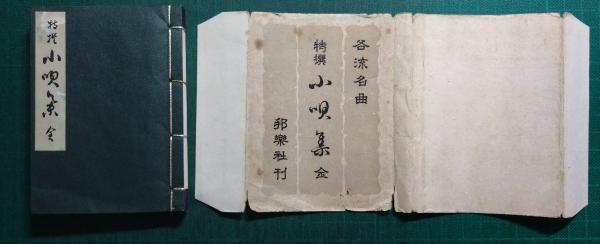 特撰 小唄集 全
各流名曲
特撰 小唄集 全
邦樂社刊